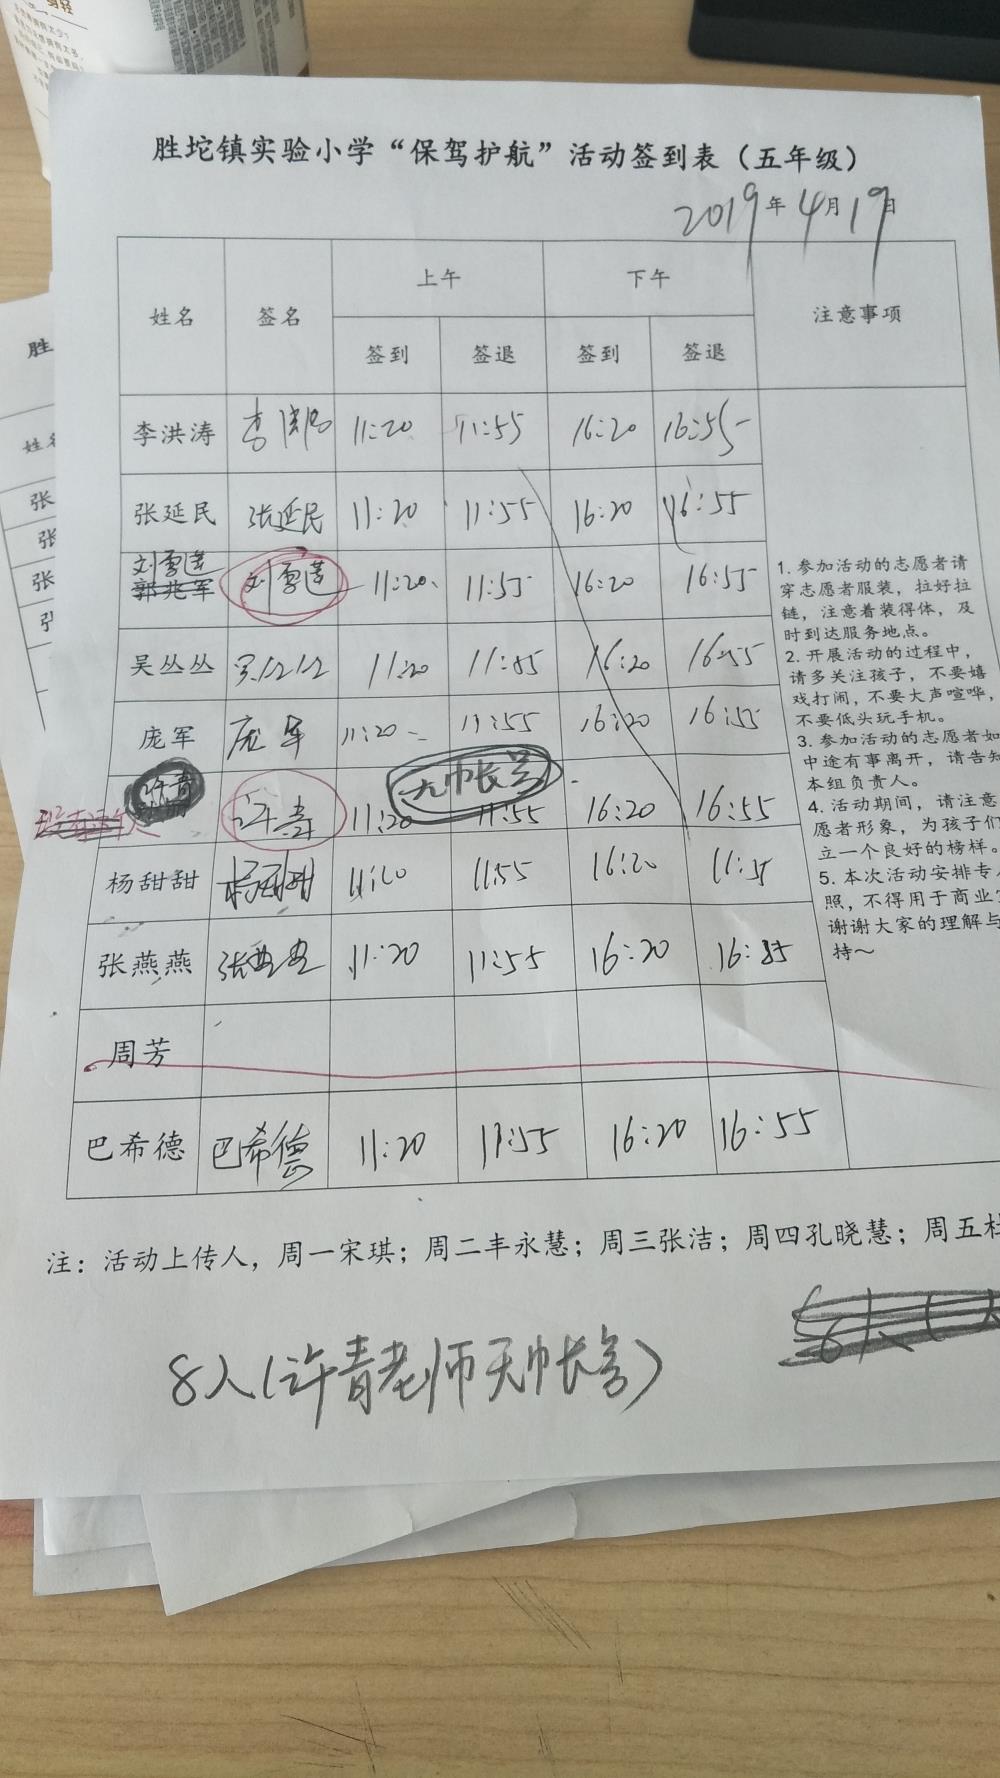 胜坨镇实验小学“保驾护航”活动签到表（五年级）
2019年4月19日
姓名 签名 上午 下午 注意事项
签到 签退 签到 签退
李洪涛 李洪涛 11:20 11:55 16:20 16:55
张延民 张延民 11:20 11:55 16:20 16:55
刘雪莲
郭兆军 刘雪莲 11:20 11:55 16:20 16:55
吴丛丛 吴丛丛 11:20 11:55 16:20 16:55
庞军 庞军 11:20 11:55 16:20 16:55
许青 许青 11:20 无巾长号 11:55 16:20 16:55
杨甜甜 杨甜甜 11:20 11:55 16:20 11:55
张燕燕 张燕燕 11:20 11:55 16:20 16:55
周芳
巴希德 巴希德 11:20 11:55 16:20 16:55
1. 参加活动的志愿者请
穿志愿者服装，拉好拉
链，注意着装得体，及
时到达服务地点。
2. 开展活动的过程中，
请多关注孩子，不要嬉
戏打闹，不要大声喧哗，
不要低头玩手机。
3. 参加活动的志愿者如
中途有事离开，请告知
本组负责人。
4. 活动期间，请注意
愿者形象，为孩子们
立一个良好的榜样。
5. 本次活动安排专
照，不得用于商业
谢谢大家的理解与
持～
注：活动上传人，周一宋琪；周二丰永慧；周三张洁；周四孔晓慧；周五杜
8人（许青老师无巾长号）
胜
姓名
张
张
张